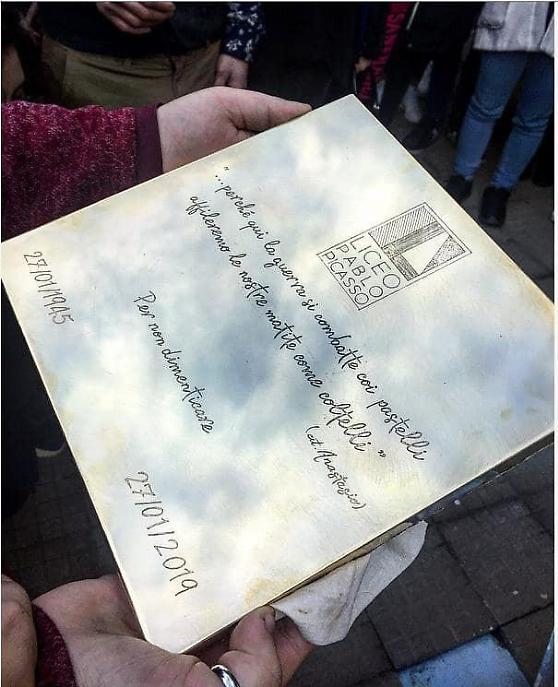 LICEO
PABLO
PICASSO
"...perché qui la guerra si combatte coi pastelli
affileremo le nostre matite come coltelli"
(cit. Anastasio)
Per non dimenticare
27/01/1945
27/01/2019